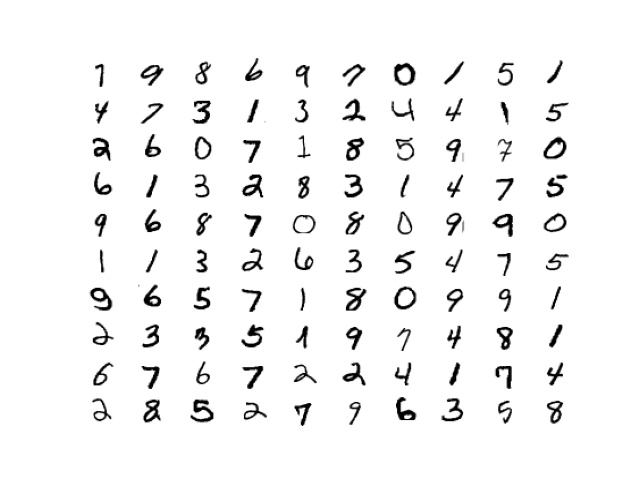 7 9 8 6 9 7 0 1 5 1
4 7 3 1 3 2 4 4 1 5
2 6 0 7 1 8 5 9 7 0
6 1 3 2 8 3 1 4 7 5
9 6 8 7 0 8 0 9 9 0
1 1 3 2 6 3 5 4 7 5
9 6 5 7 1 8 0 9 9 1
2 3 3 5 1 9 7 4 8 1
6 7 6 7 2 2 4 1 7 4
2 8 5 2 7 9 6 3 5 8